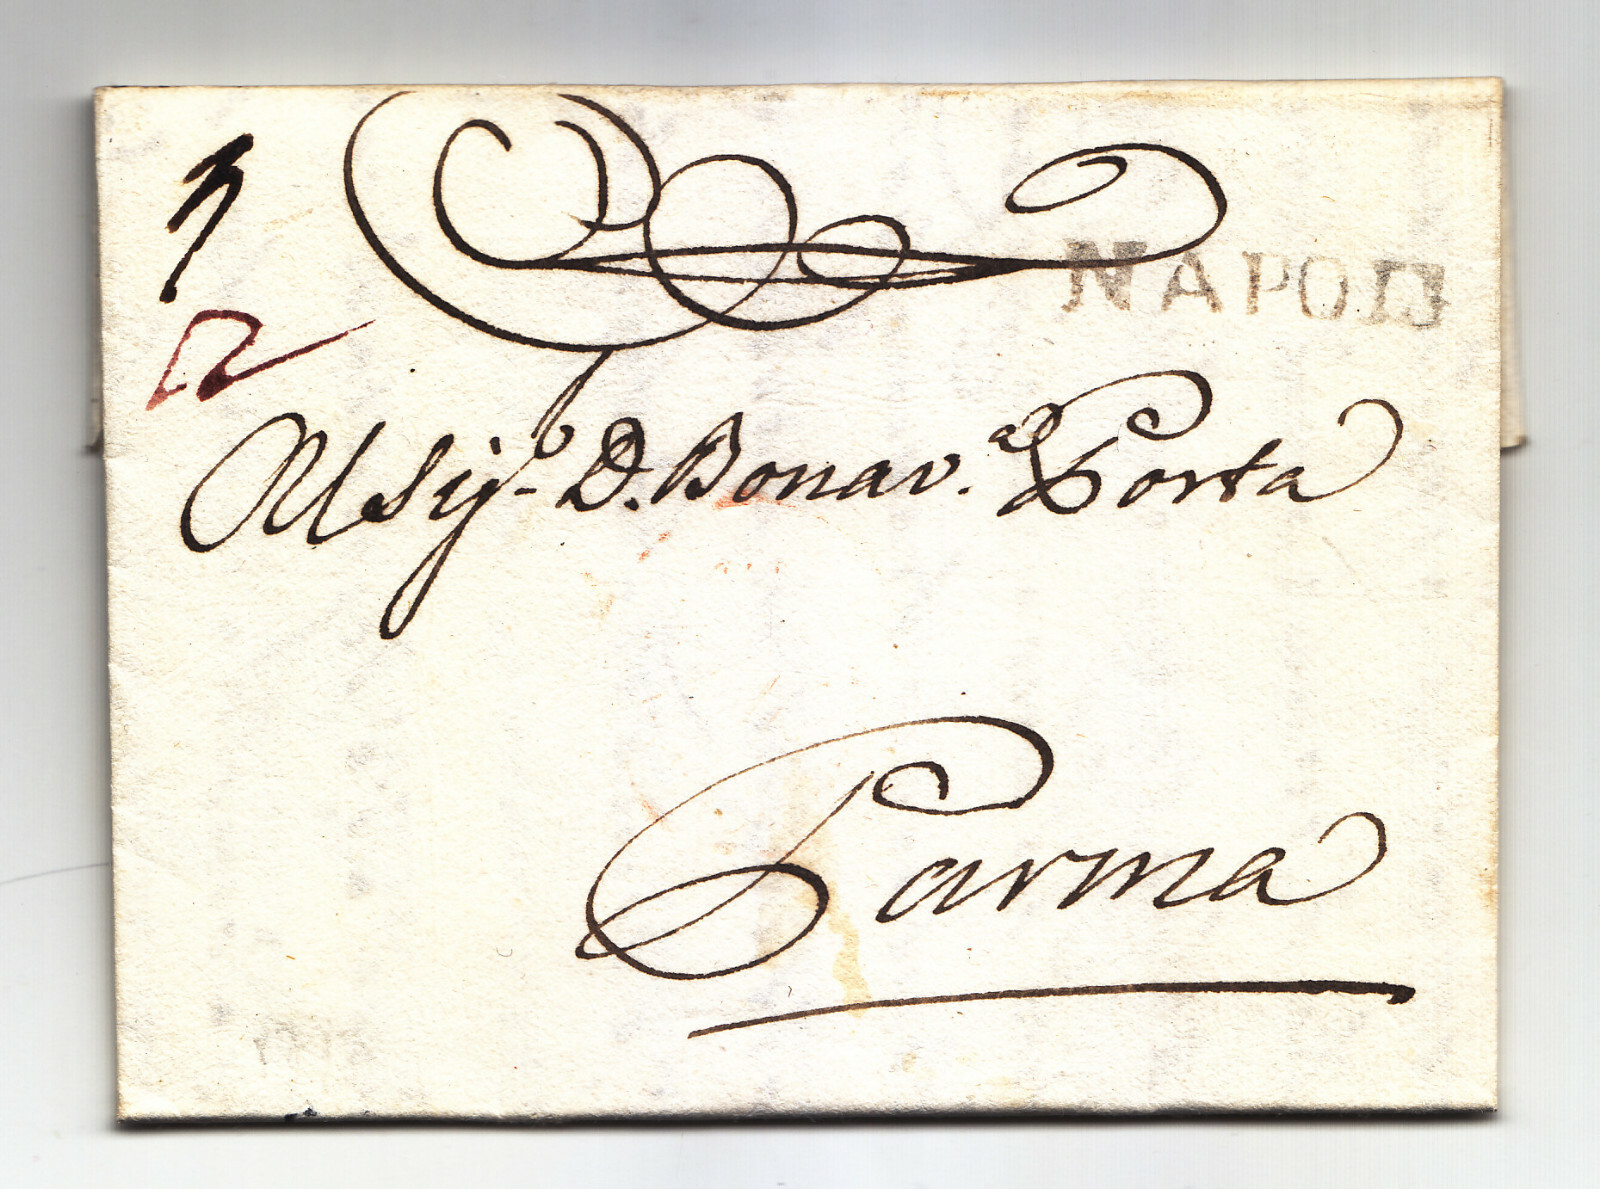 3
NAPOLI
12
Al Sig.r D. Bonav.a Porta
Parma